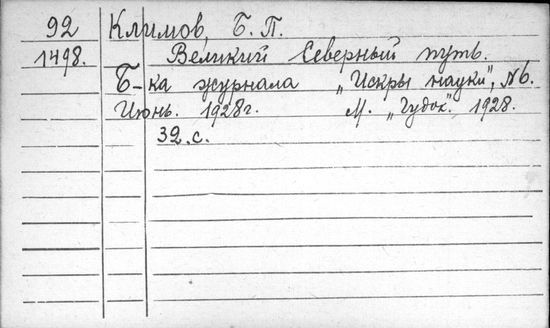 92 Климов, Б. П.
1498. Великий Северный путь.
Б-ка журнала „Искры науки", №6.
Июнь. 1928г. М. „Гудок". 1928.
32. с.